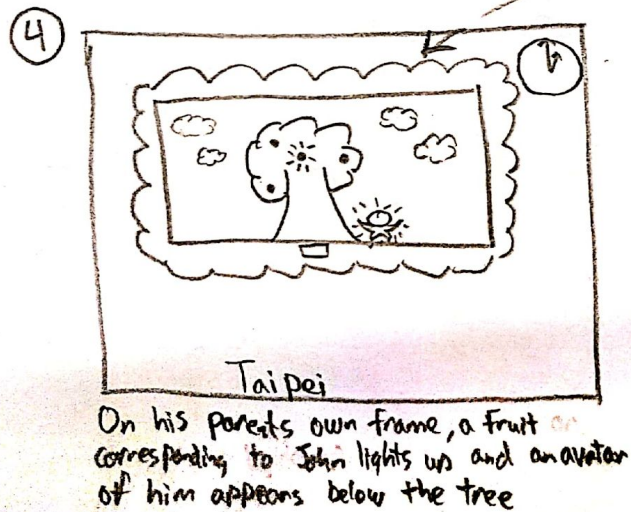 4
Taipei
On his parents own frame, a fruit
corresponding to John lights up and an avatar
of him appears below the tree